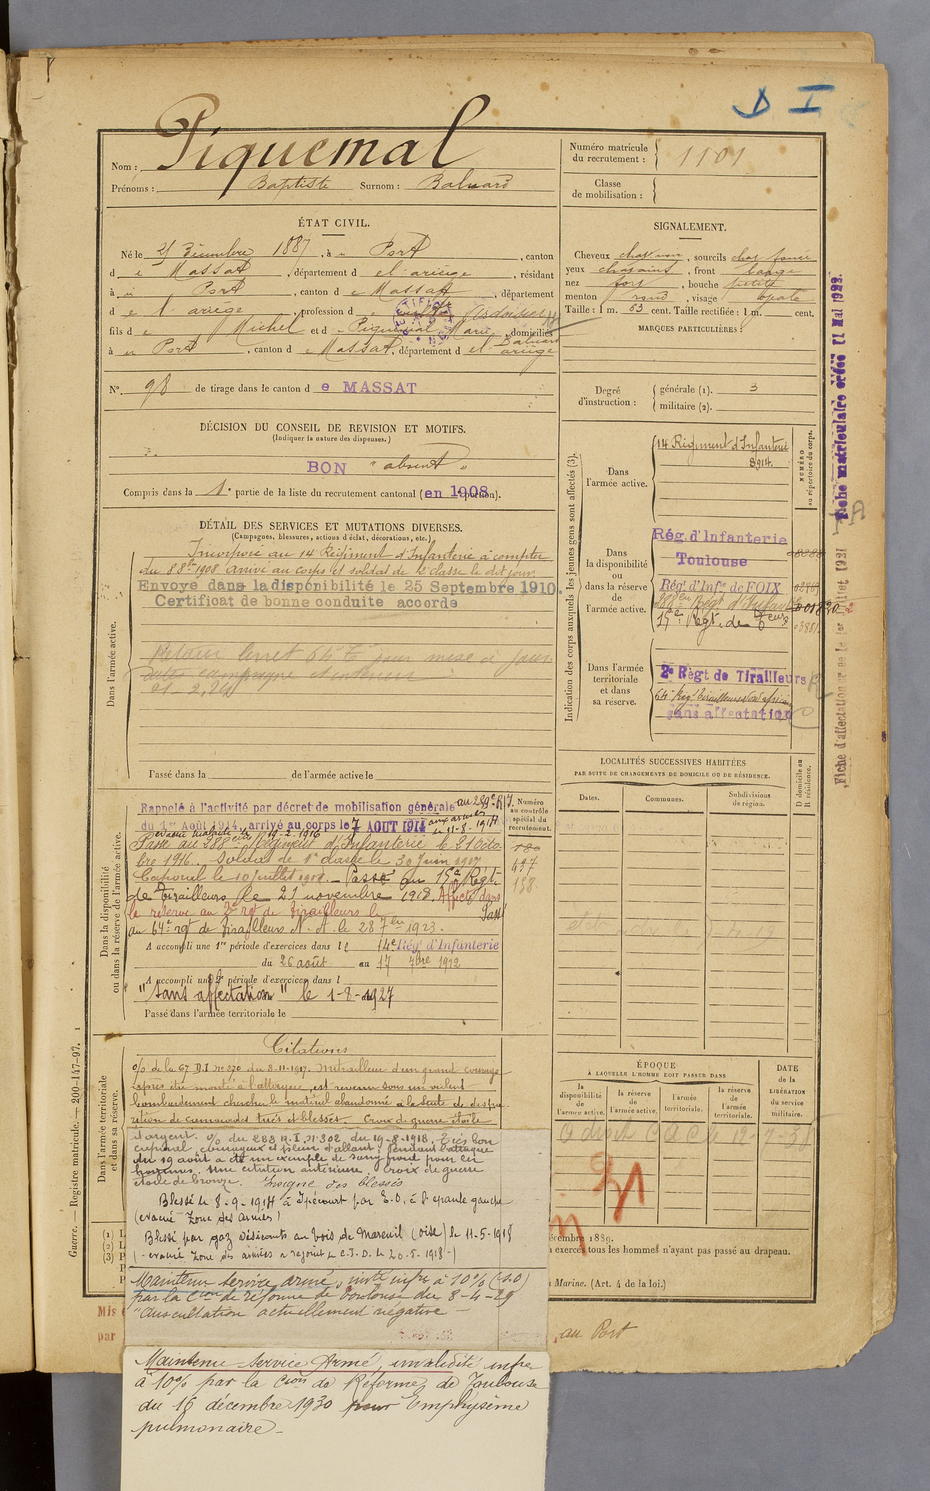 D I
Nom : Piquemal
Prénoms : Baptiste Surnom : Baluard
Numéro matricule du recrutement : 1101
Classe de mobilisation :
ÉTAT CIVIL.
Né le 25 Décembre 1887, à Port, canton
de Massat, département de l'ariège, résidant
à Port, canton de Massat, département
de l'ariège, profession de
fils de Michel et de Piquemal Marie, domiciliés
à Port, canton de Massat, département de l' ariège
N° 98 de tirage dans le canton de MASSAT
SIGNALEMENT.
Cheveux chat , sourcils chat foncé
yeux chatains, front large
nez fort, bouche petite
menton rond, visage ovale
Taille : 1 m. 53 cent. Taille rectifiée : 1 m. cent.
MARQUES PARTICULIÈRES :
Degré d'instruction : générale (1). 3
militaire (2).
DÉCISION DU CONSEIL DE REVISION ET MOTIFS.
(Indiquer la nature des dispenses.)
BON "absent"
Compris dans la 1e partie de la liste du recrutement cantonal (en 1908 portion).
DÉTAIL DES SERVICES ET MUTATIONS DIVERSES.
(Campagnes, blessures, actions d'éclat, décorations, etc.)
Dans l'armée active.
Incorporé au 14 Régiment d'Infanterie à compter
du 8 8bre 1908 Arrivé au corps et soldat de 2e classe le dit jour
Envoyé dans la disponibilité le 25 Septembre 1910
Certificat de bonne conduite accordé
Passé dans la de l'armée active le
Indication des corps auxquels les jeunes gens sont affectés (3).
NUMÉRO au répertoire du corps.
Dans l'armée active.
14 Régiment d'Infanterie
8914.
Dans la disponibilité ou dans la réserve de l'armée active.
Rég. d'Infanterie
Toulouse
Rég. d'Infie de FOIX
288e Régt d'Infant
15e Régt de Teurs
Dans l'armée territoriale et dans sa réserve.
2e Régt de Tirailleurs
64e Régt Tirailleurs
sans affectation
Fiche matriculaire créée 11 Mai 1922.
Fiche d'affectation créée le 1er Juillet 1921
Dans la disponibilité ou dans la réserve de l'armée active.
Numéro au contrôle spécial du recrutement.
Rappelé à l'activité par décret de mobilisation générale au 259e R.I.
du 1er Août 1914, arrivé au corps le 7 AOUT 1914 aux armées le 11-8-1914
Passé au 288eme Régiment d'Infanterie le 21 Octo
bre 1916. Soldat de 1e classe le 30 Juin 1917
Caporal le 10 juillet 1918. — Passé au 15e Régt
de Tirailleurs le 21 novembre 1918. Affecté dans
la réserve au 2e rgt de Tirailleurs le Passé
au 64e rgt de Tirailleurs N. A. le 28 7bre 1923.
497
138
A accompli une 1re période d'exercices dans le 14e Rég. d'Infanterie
du 26 août au 17 7bre 1912
A accompli une 2e période d'exercices dans l
"Sans affectation" le 1-8-1927
Passé dans l'armée territoriale le
LOCALITÉS SUCCESSIVES HABITÉES
PAR SUITE DE CHANGEMENTS DE DOMICILE OU DE RÉSIDENCE.
Dates. Communes. Subdivisions de région. D domicile ou R résidence.
Dans l'armée territoriale et dans sa réserve.
Citations
O/ de la 67 D.I n° 270 du 8-11-1917. Mitrailleur d'un grand courage
après être monté à l'attaque, est revenu sous un violent
bombardement chercher le matériel abandonné à la suite de dispa
rition de camarades tués et blessés. Croix de guerre étoile
d'argent. O/ du 288 R.I. n° 302 du 19-8-1918. Très bon
caporal, courageux et plein d'allant. Pendant l'attaque
du 19 août a été un exemple de sang froid pour ses
hommes. Une citation antérieure. Croix de guerre
étoile de bronze. Insigne des blessés
Blessé le 8-9-1914 à Ipécourt par E.O. à l'épaule gauche
(évacué Zone des Armées)
Blessé par gaz vésicants au bois de Mareuil (Oise) le 11-5-1918
(évacué Zone des armées a rejoint le C.I.D. le 20-5-1918-)
Maintenu service armé, invté infre à 10% (s.o)
par la Cion de réforme de Toulouse du 8-4-29
"Auscultation actuellement négative —
Maintenu service Armé, invalidité infre
à 10% par la Cion de Réforme de Toulouse
du 16 décembre 1930 pour Emphysème
pulmonaire —
ÉPOQUE
À LAQUELLE L'HOMME DOIT PASSER DANS
la disponibilité de l'armée active.
la réserve de l'armée active.
l'armée territoriale.
la réserve de l'armée territoriale.
DATE de la LIBÉRATION du service militaire.
décembre 1889.
à exercé tous les hommes n'ayant pas passé au drapeau.
Marine. (Art. 4 de la loi.)
au Port
Mis
par
Guerre. — Registre matricule. — 200-147-97.